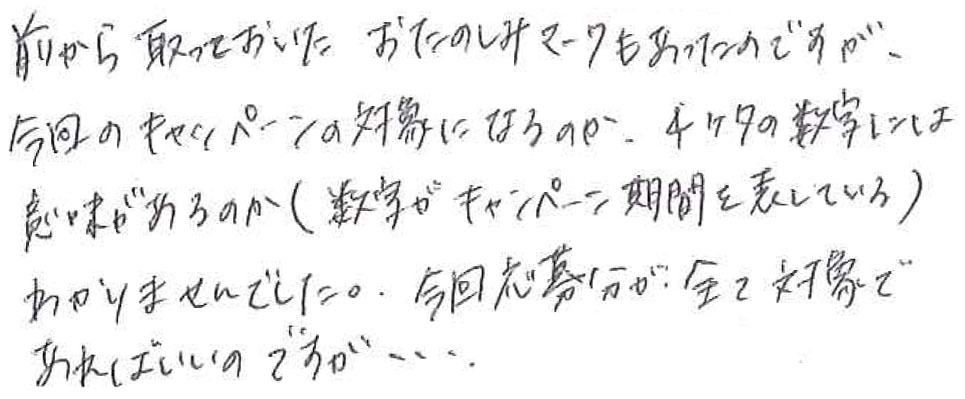 前から取っておいた おたのしみマークもあったのですが、
今回のキャンペーンの対象になるのか、4ケタの数字には
意味があるのか(数字がキャンペーン期間を表している)
わかりませんでした。今回応募分が全て対象で
あればいいのですが・・・.